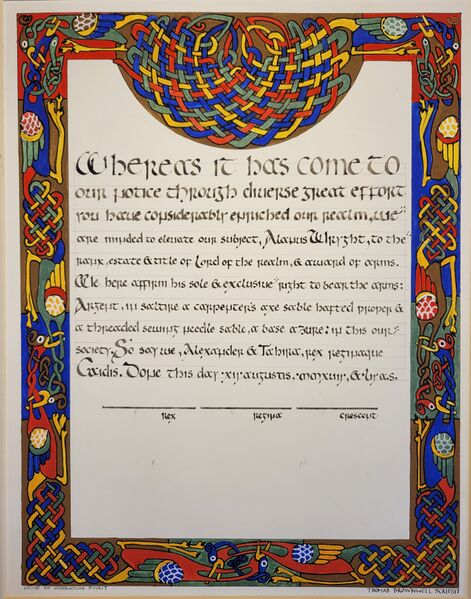 Whereas it has come to
our notice through diverse great effort
you have considerably enriched our realm, we
are minded to elevate our subject, Alanus Whryght, to the
rank, estate & title of Lord of the realm, & award of arms.
We here affirm his sole & exclusive right to bear the arms:
Argent, in saltire a carpenters axe sable hafted proper &
a threaded sewing needle sable, a base azure: in this our
society. So say we, Alexander & Tahira, rex reginaque
Caidis. Done this day .xii. augustis.
rex regina crescent
HOUSE OF PINXIT
THOMAS BROWNWELL SCRIPSIT